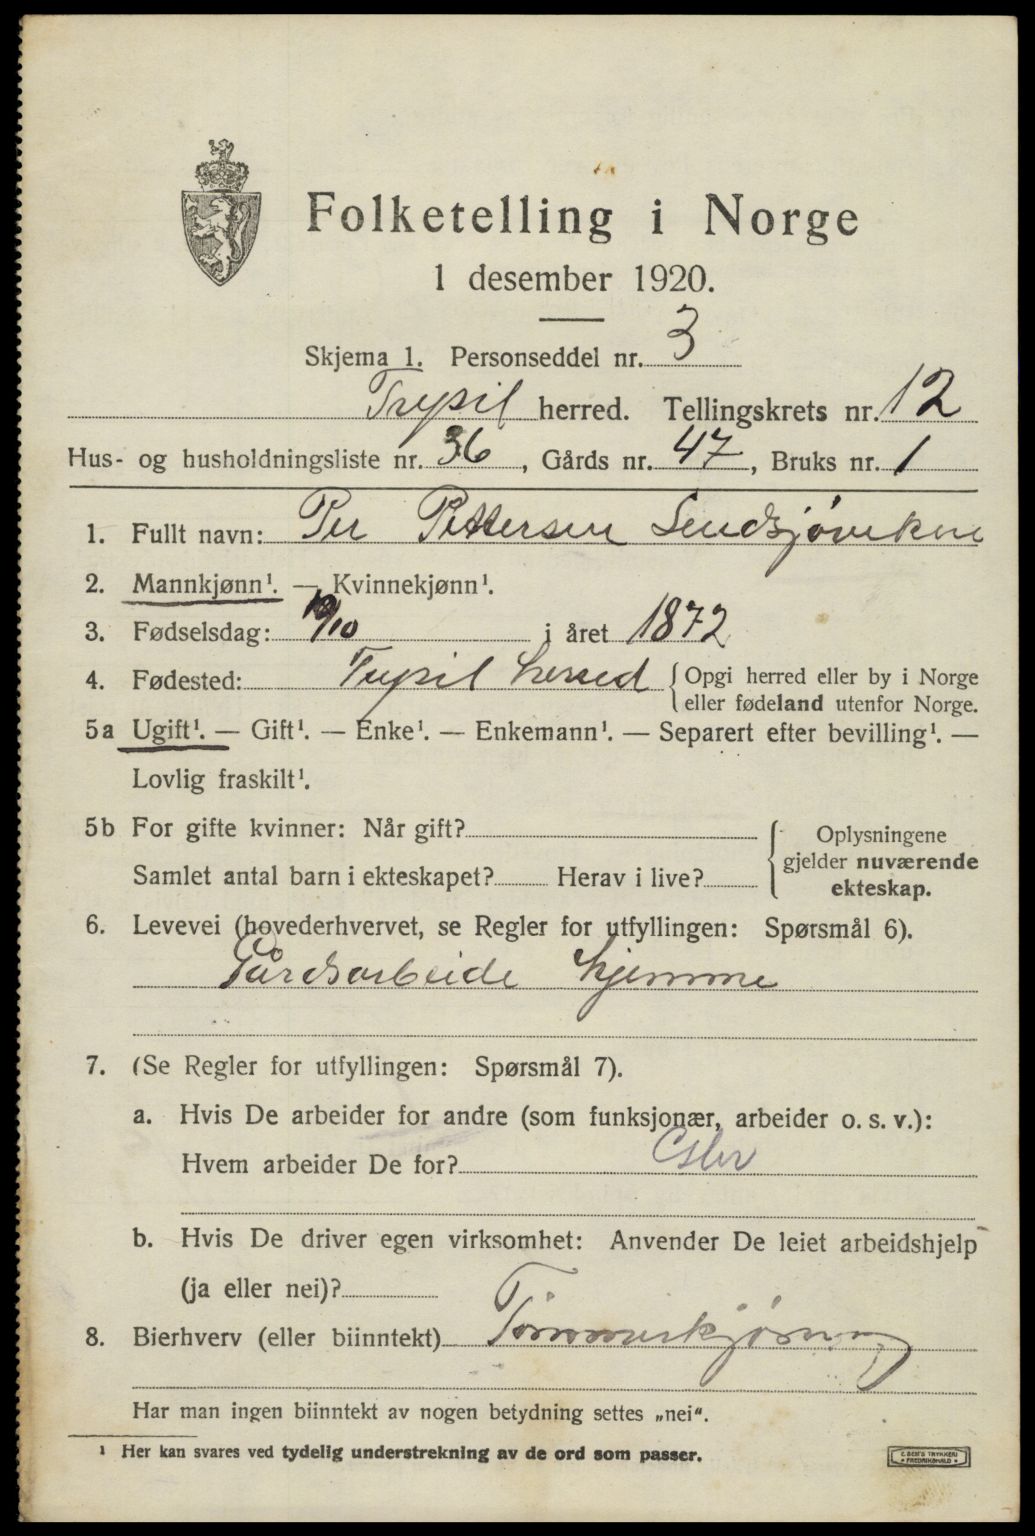 Folketelling i Norge
1 desember 1920.
Skjema 1. Personseddel nr. 3
Trysil herred. Tellingskrets nr. 12
Hus- og husholdningsliste nr. 36, Gårds nr. 47, Bruks nr. 1
1. Fullt navn: Per Pettersen
2. Mannkjønn¹. — Kvinnekjønn¹.
3. Fødselsdag: 19/10 i året 1872
4. Fødested: Trysil herred { Opgi herred eller by i Norge
eller fødeland utenfor Norge.
5a Ugift¹. — Gift¹. — Enke¹. — Enkemann¹. — Separert efter bevilling¹. —
Lovlig fraskilt¹.
5b For gifte kvinner: Når gift? { Oplysningene
gjelder nuværende
ekteskap.
Samlet antal barn i ekteskapet? Herav i live?
6. Levevei (hovederhvervet, se Regler for utfyllingen: Spørsmål 6).
Gårdsarbeide hjemme
7. (Se Regler for utfyllingen: Spørsmål 7).
a. Hvis De arbeider for andre (som funksjonær, arbeider o. s. v.):
Hvem arbeider De for?
b. Hvis De driver egen virksomhet: Anvender De leiet arbeidshjelp
(ja eller nei)?
8. Bierhverv (eller biinntekt) Tømmerkjøring
Har man ingen biinntekt av nogen betydning settes „nei".
¹ Her kan svares ved tydelig understrekning av de ord som passer.
E. SEM'S TRYKKERI
FREDRIKSHALD